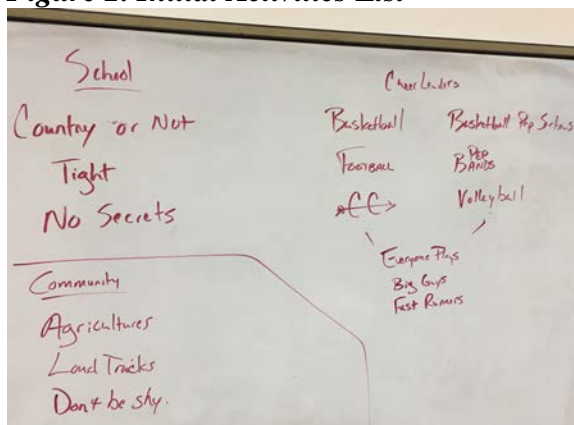 Figure 2. Initial Activities List
School
Country or Not
Tight
No Secrets
Community
Agricultures
Loud Trucks
Don't be shy.
Cheer Leaders
Basketball
Basketball Pep
Football
PEP
BANDS
CC
Volleyball
Everyone Plays
Big Guys
Fast Runners